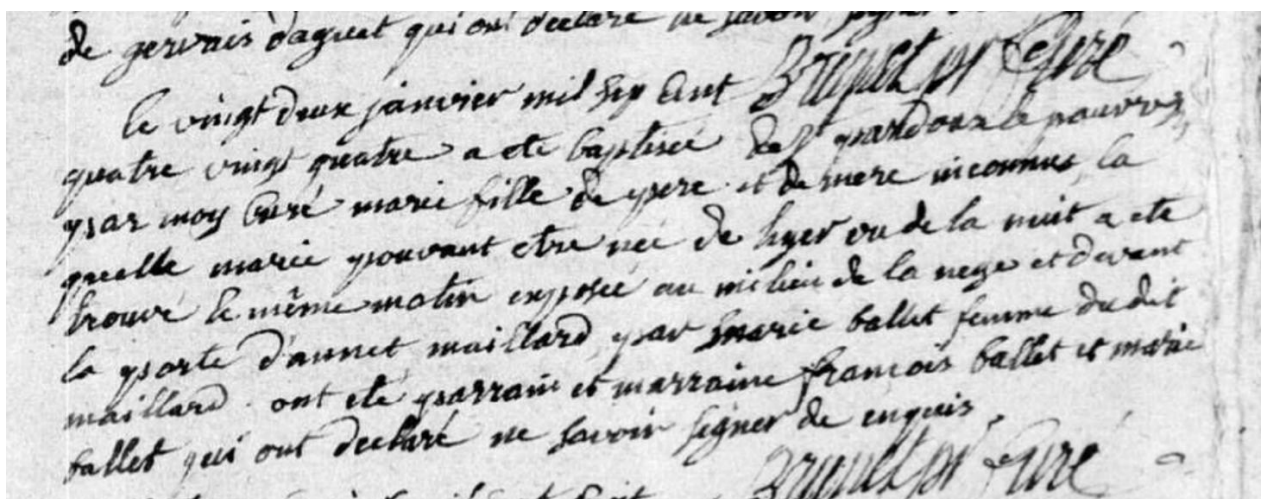 de gervais daguet qui ont declaré ne savoir signer
Brunet pr Curé
le vingt deux janvier mil sept cent
quatre vingt quatre a ete baptisée de st pardoux le pauvre,
par moy Curé marie fille de pere et de mere inconnus, la
quelle marie pouvant etre née de hyer ou de la nuit a ete
trouvé le même matin exposée au milieu de la nege et devant
la porte d'annet maillard, par marie ballet femme du dit
maillard. ont eté parrain et marraine françois ballet et marie
ballet qui ont declaré ne savoir signer de enquis.
Brunet pr Curé